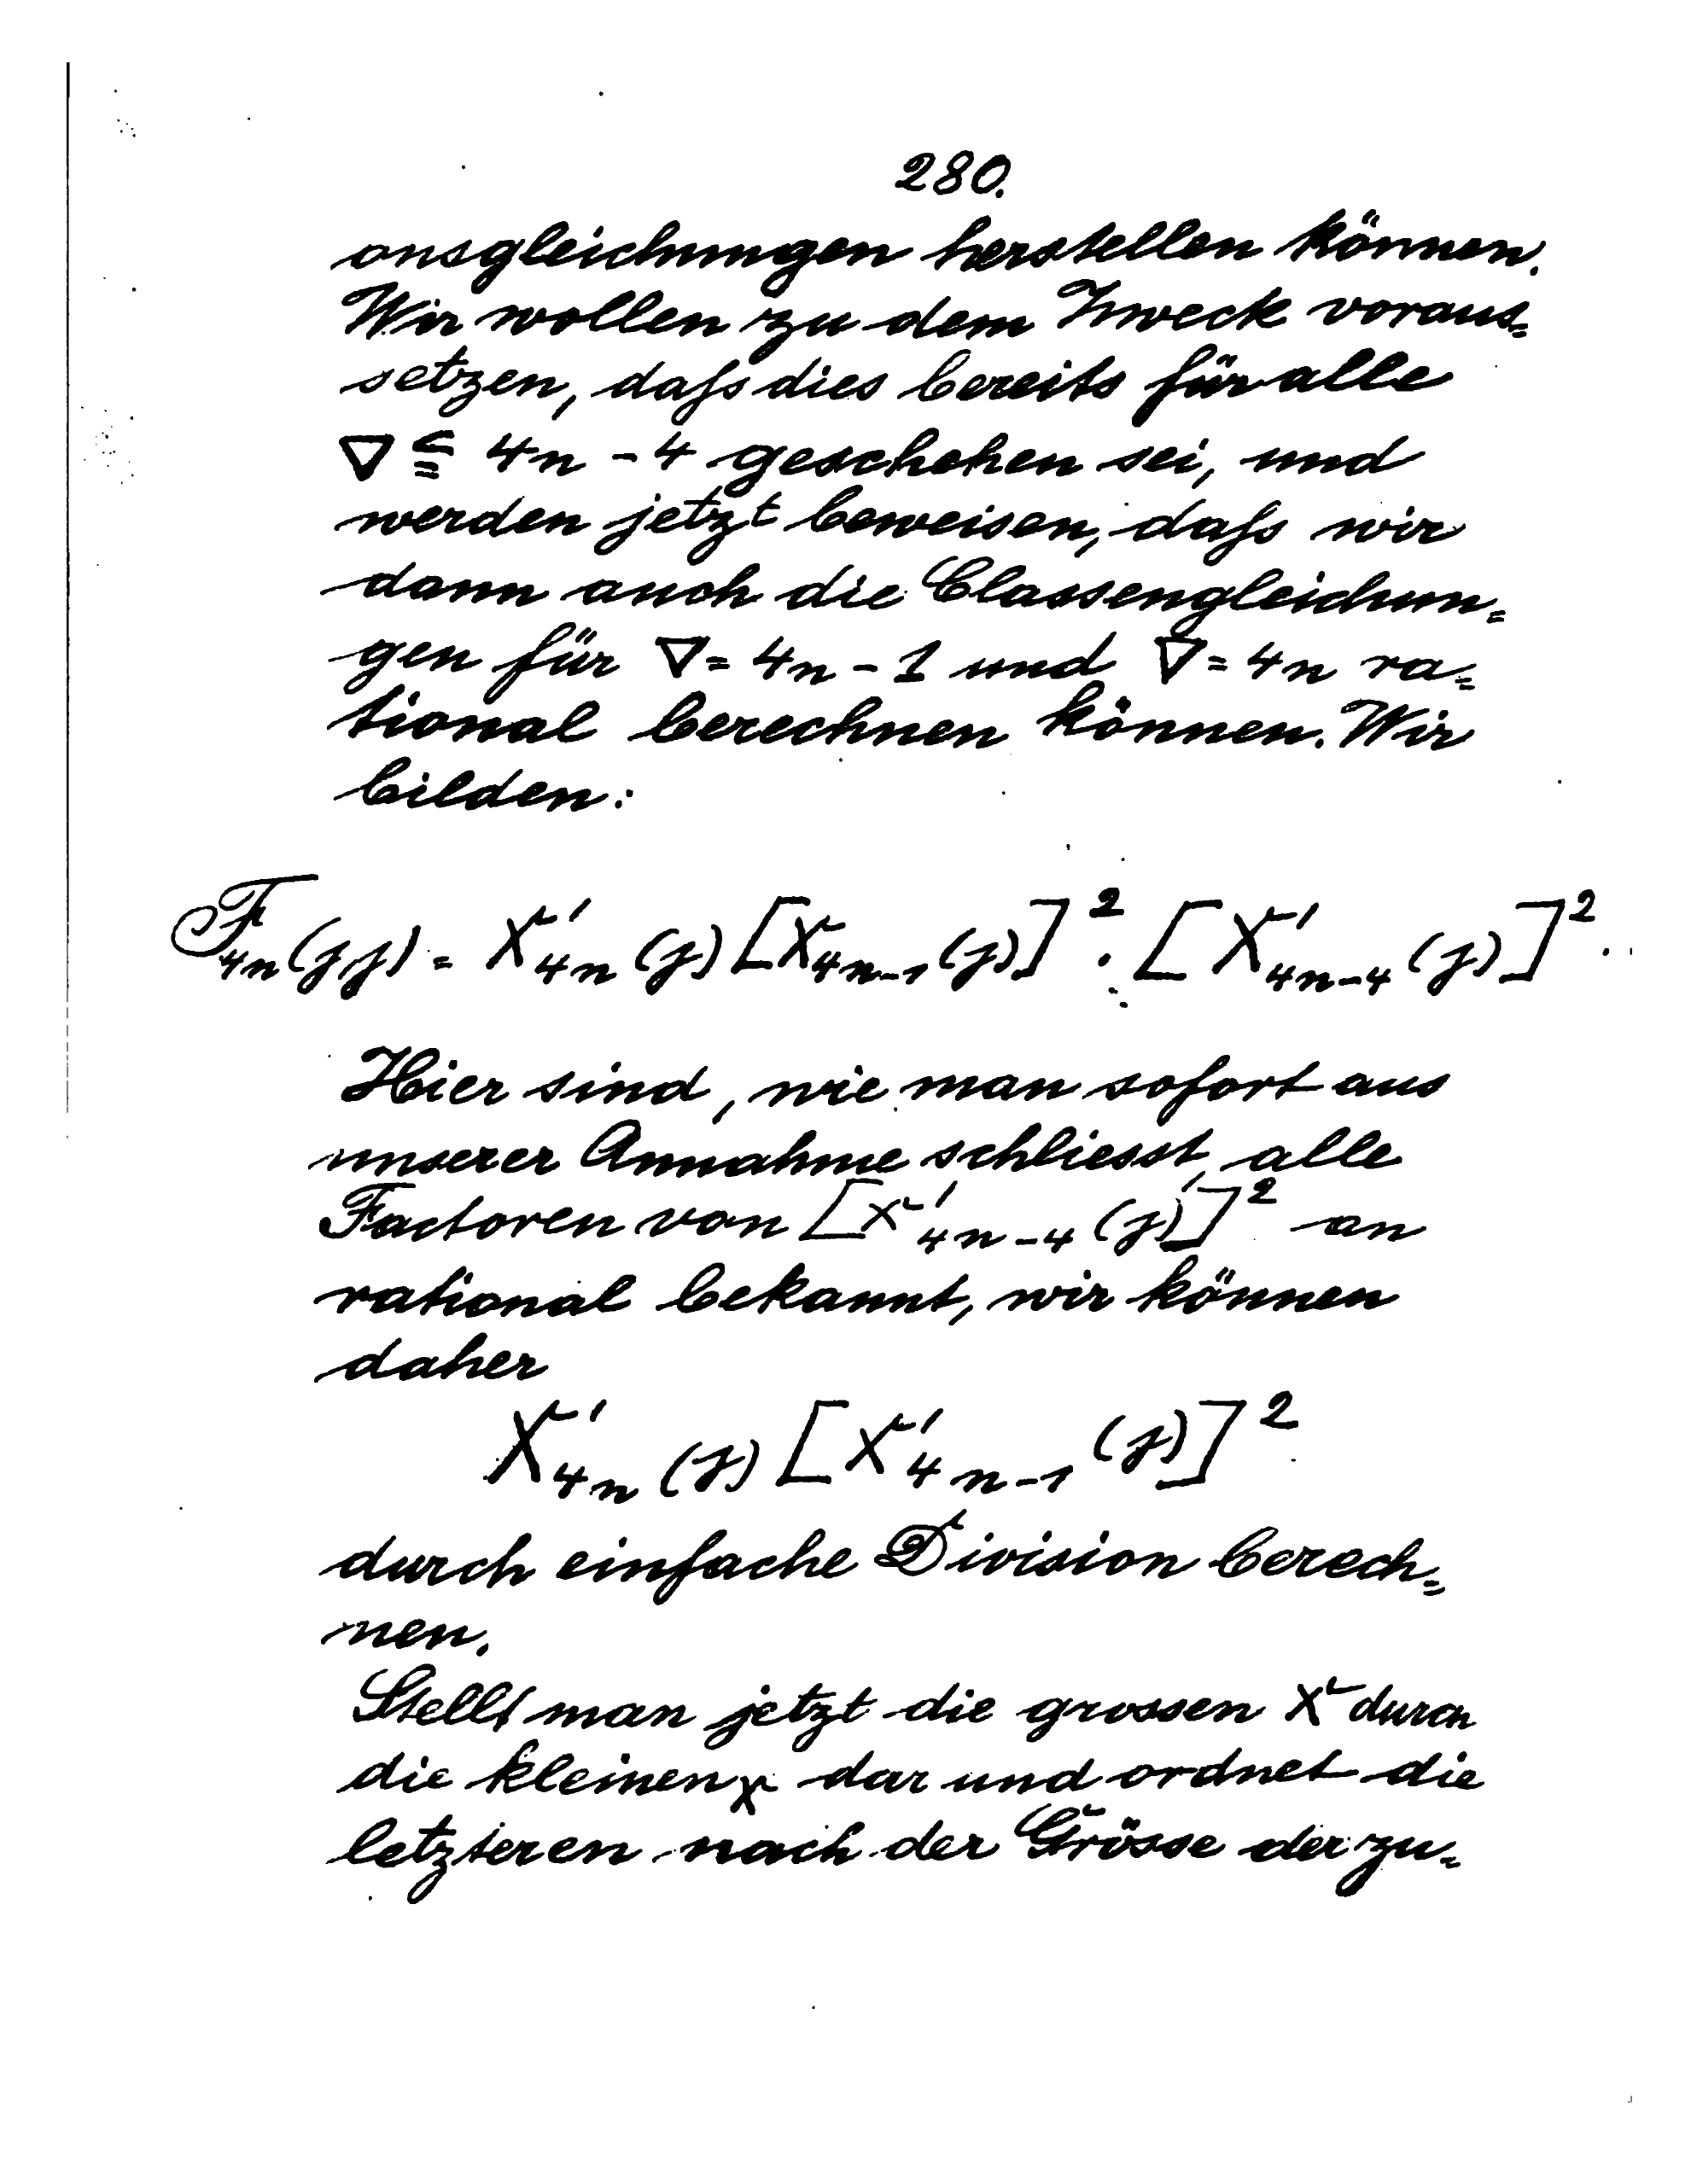 280.
onsgleichungen herstellen können.
Wir wollen zu dem Zweck voraus=
setzen, daſs dies bereits für alle
∇ ≦ 4n - 4 geschehen sei, und
werden jetzt beweisen, daſs wir
dann auch die Classengleichun=
gen für ∇ = 4n - 1 und ∇ = 4n ra=
tional berechnen können. Wir
bilden:
F_{4n}(j,j) = X'_{4n}(j) [X_{4n-1}(j)]^2 · [X'_{4n-4}(j)]^2 ··
Hier sind, wie man sofort aus
unserer Annahme schliesst, alle
Factoren von [X'_{4n-4}(j)]^2 an
rational bekannt, wir können
daher
X'_{4n}(j) [X'_{4n-1}(j)]^2
durch einfache Division berech=
nen.
Stellt man jetzt die grossen X durch
die kleinen χ dar und ordnet die
letzteren nach der Grösse der zu=